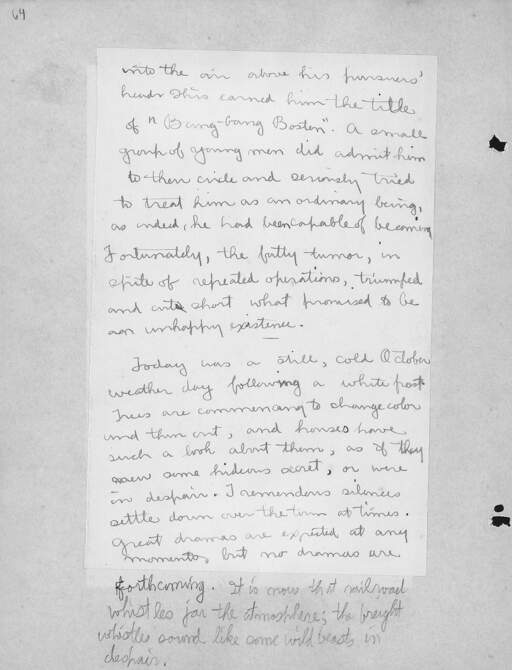 64
into the air above his pursuers'
heads. This earned him the title
of "Bang-bang Boston". A small
group of young men did admit him
to their circle and seriously tried
to treat him as an ordinary being,
as indeed, he had been capable of becoming
Fortunately, the fatty tumor, in
spite of repeated operations, triumped
and cut short what promised to be
an unhappy existence.
Today was a still, cold October
weather day following a white frost
Trees are commencing to change color
and thin out, and houses have
such a look about them, as if they
knew some hideous secret, or were
in despair. Tremendous silences
settle down over the town at times.
Great dramas are expected at any
moment, but no dramas are
forthcoming. It is now that railroad
whistles jar the atmosphere; the freight
whistles sound like some wild beasts in
despair.